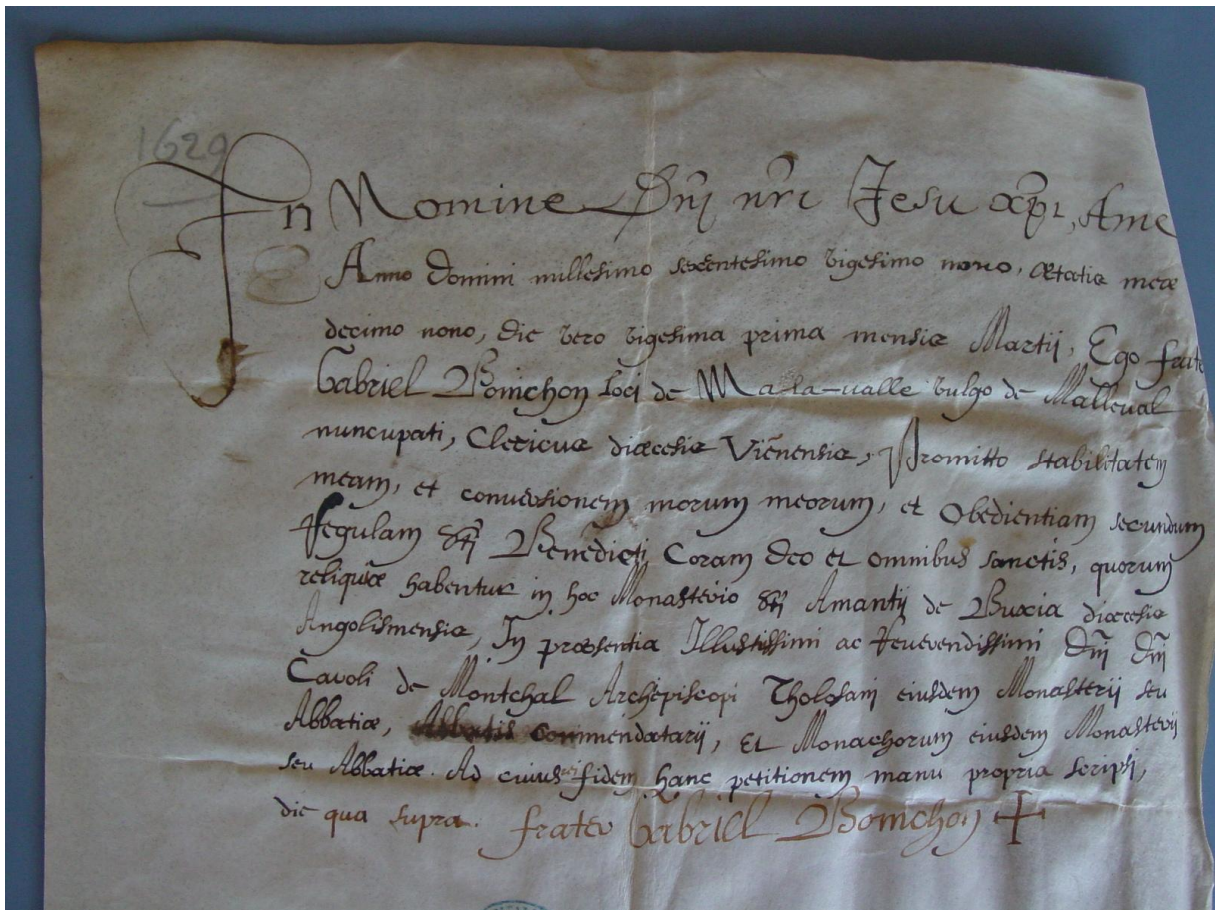 1629
In Nomine Dnj nri Jesu xpi, Ame
Anno Domini millesimo sexcentesimo vigesimo nono, ætatis meæ
decimo nono, die vero vigesima prima mensis Martij, Ego frate
Gabriel Bomchon loci de Mala-valle vulgo de Malleval
nuncupati, Clericus diœcesis Viēnensis, Promitto stabilitatem
meam, et conversionem morum meorum, et Obedientiam secundum
Regulam Sti Benedicti Coram deo et omnibus sanctis, quorum
reliquiæ habentur in hoc Monasterio Sti Amantij de Buxia diœcesis
Angolismensis, In præsentia Illustissimi ac Reverendissimi Dnj Dnj
Caroli de Montchal Archepiscopi Tholosani eiusdem Monasterii seu
Abbatiæ, Abbatis Commendatarij, et Monachorum eiusdem Monasterij
seu Abbatiæ. Ad cuius rei fidem hanc petitionem manu propria scripsi,
die qua supra. frater Gabriel Bomchon